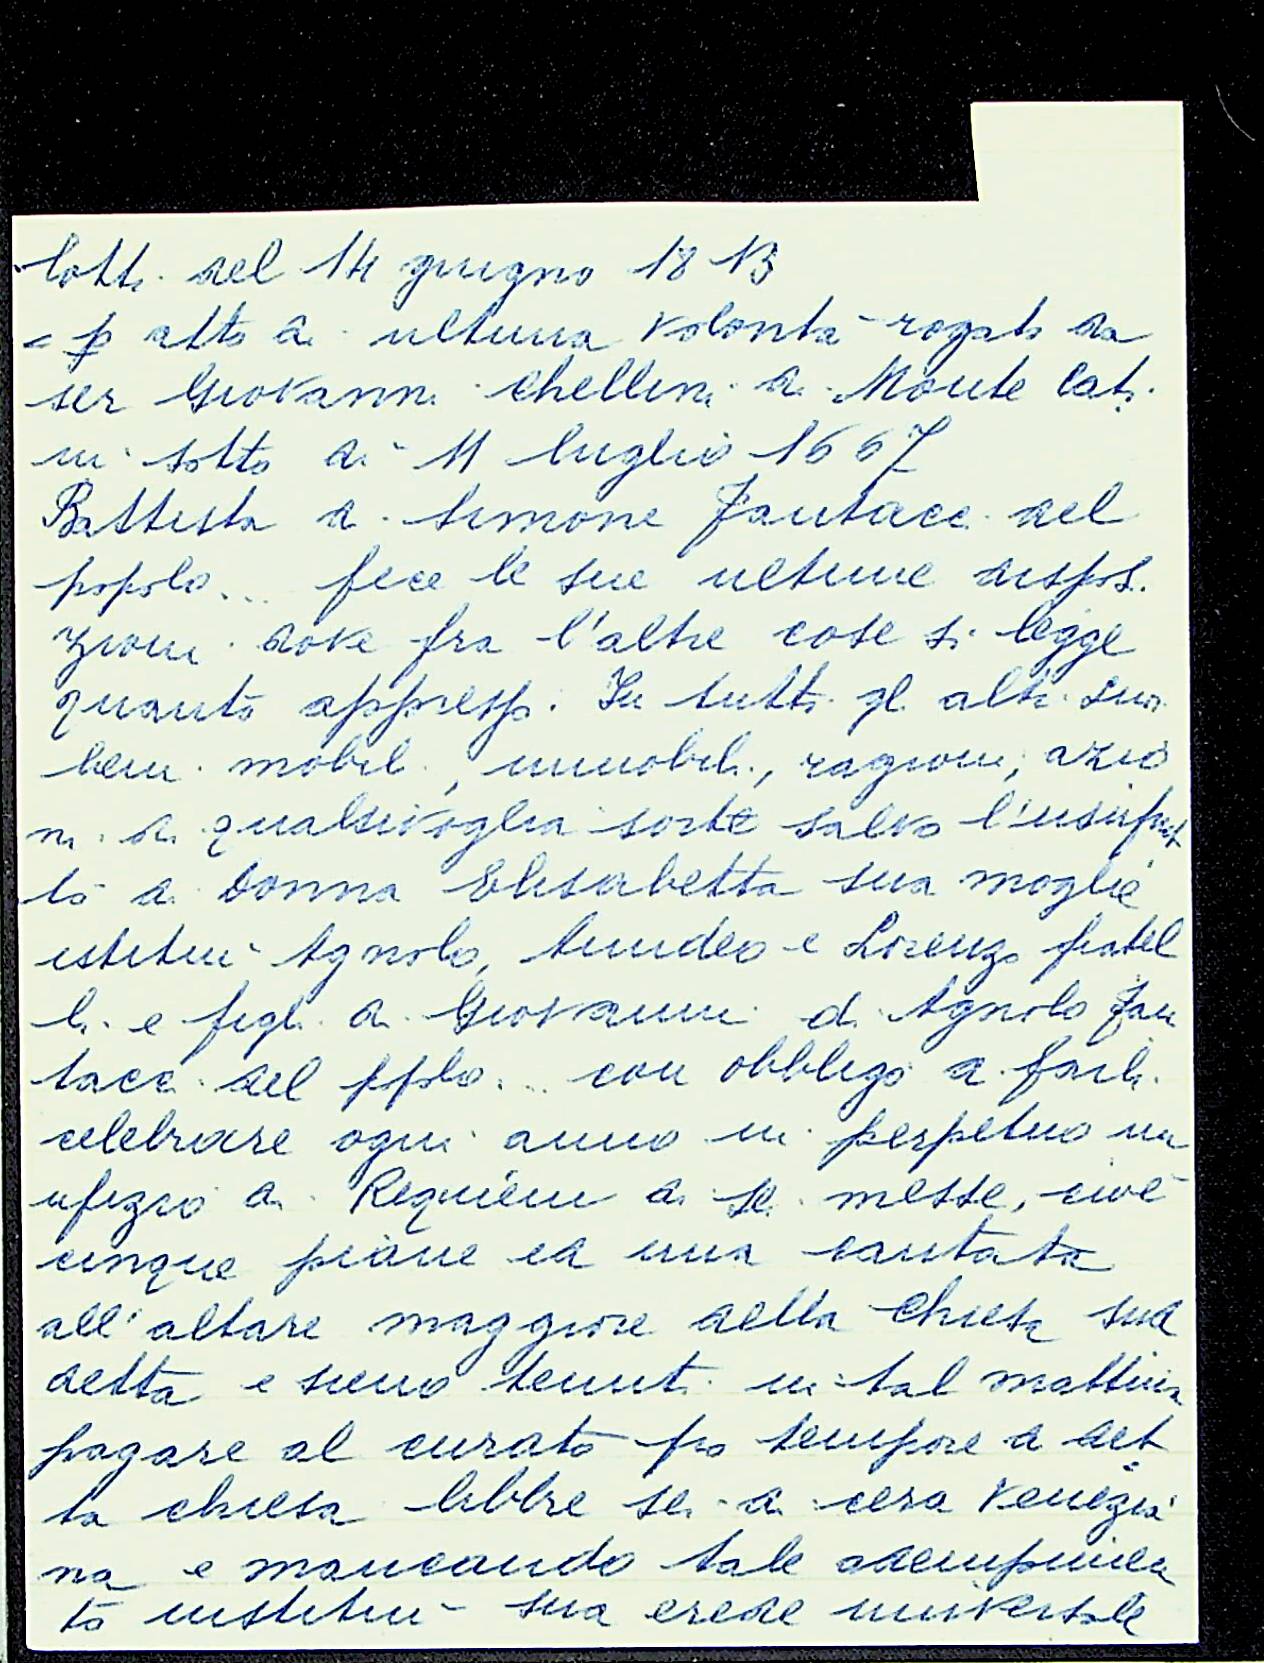 Cotti del 14 giugno 1813
= p atto di ultima volontà rogato da
ser Giovanni Chellini di Monte Cati
ni sotto di 11 luglio 1667
Battista di Simone Fantacci del
popolo... fece le sue ultime disposi
zioni dove fra l'altre cose si legge
quanto appresso. In tutti gl altri suoi
beni mobili, immobili, ragioni, azio
ni di qualsivoglia sorte salvo l'usufrut
to a Donna Elisabetta sua moglie
istituì Agnolo, Amideo e Lorenzo fratel
li e figli di Giovanni di Agnolo Fan
tacci del pplo... con obbligo di farli
celebrare ogni anno in perpetuo un
ufizio di Requiem di sei messe, cioè
cinque piane ed una cantata
all'altare maggiore della Chiesa sud
detta e sieno tenuti in tal mattina
pagare al curato pro tempore di det
ta chiesa libbre sei di cera Venezia
na e mancando tale adempimen
to institui sua erede universale